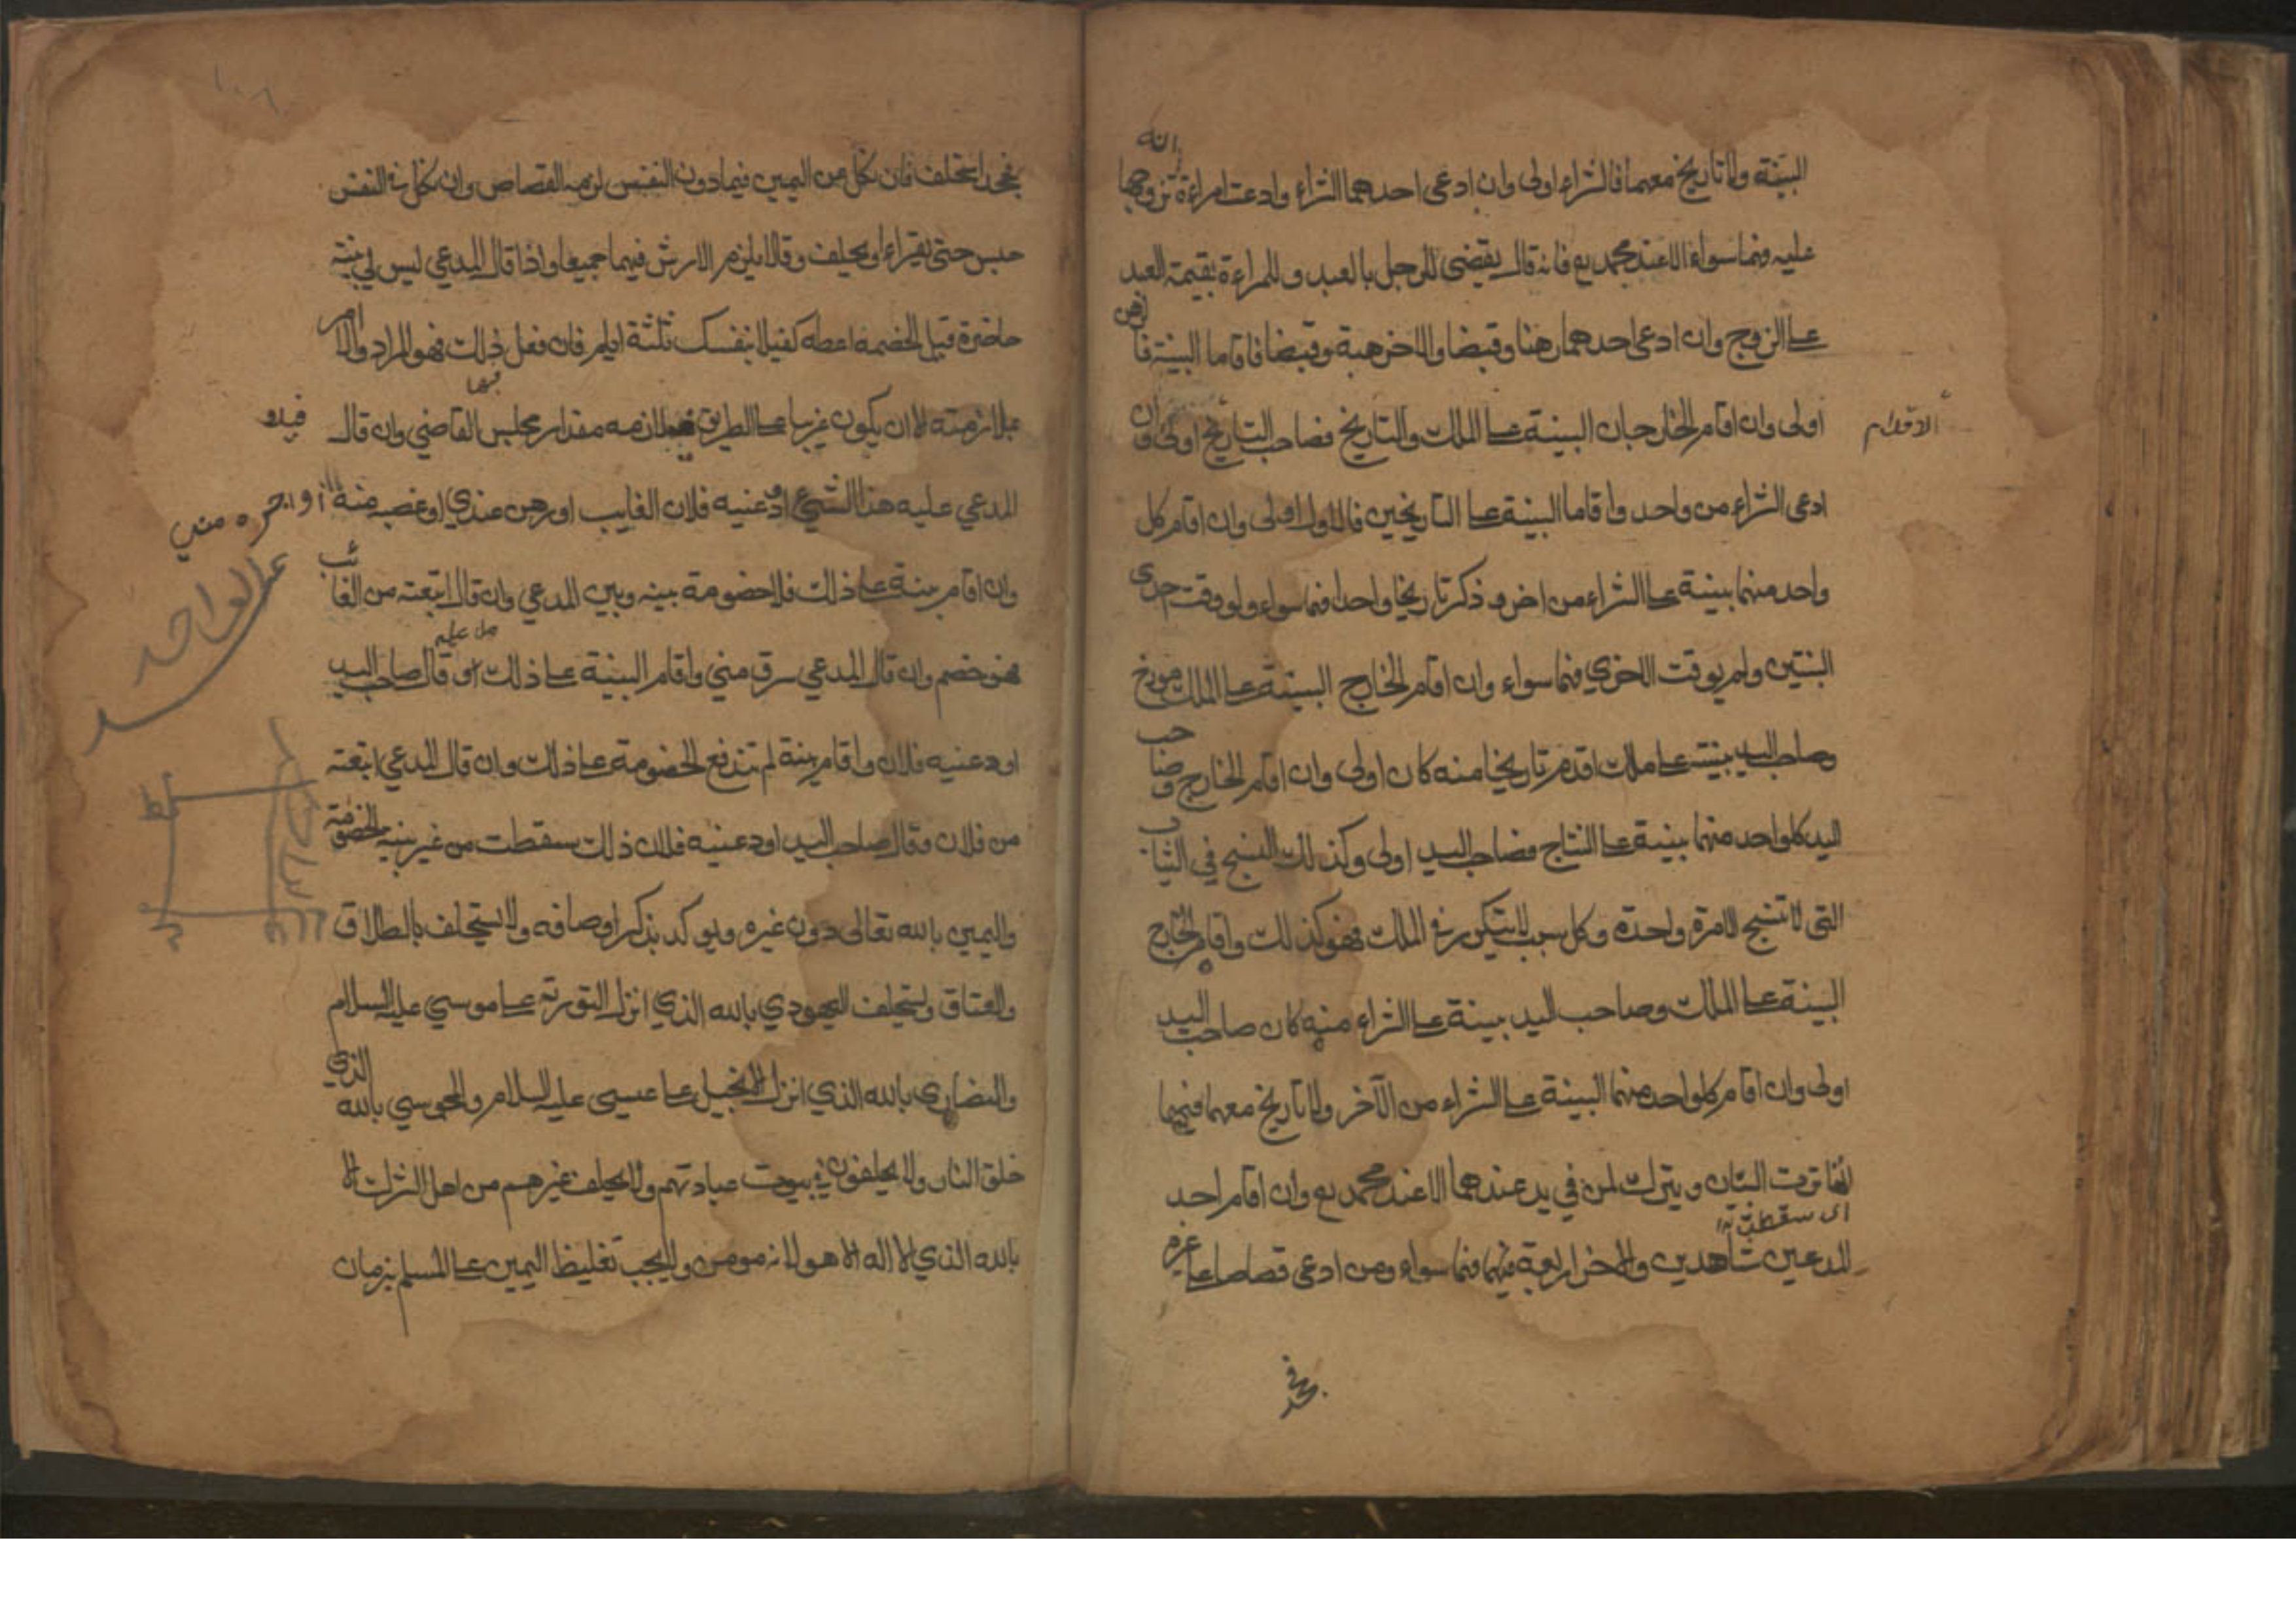 البينة ولا تاريخ معهما فالشراء اولى وان ادعى احدهما الشراء وادعت امراءة انه تزوجها
عليه فهما سواء الا عند محمد رح فانه قال يقضى للرجل بالعبد وللمراءة بقيمة العبد
على الزوج وان ادعى احدهما رهنا وقبضا والاخر هبة وقبضا فاقاما البينة فالرهن
اولى وان اقام الخارجان البينة على الملك والتاريخ فصاحب التاريخ اولى وان
الاقدام
ادعى الشراء من واحد واقاما البينة على التاريخين فالاول اولى وان اقام كل
واحد منهما بينة على الشراء من اخر وذكر تاريخا واحدا فهما سواء ولو وقت احدى
البنتين ولم يوقت الاخرى فهما سواء وان اقام الخارج البينة على الملك مورخ
وصاحب اليد بينة على ملك اقدم تاريخا منه كان اولى وان اقام الخارج وصاحب
اليد كلواحد منهما بينة على النتاج فصاحب اليد اولى وكذلك النسج في الثياب
التى لا تنسج الا مرة واحدة وكل سبب لا يتكرر في الملك فهو كذلك واقام الخارج
البينة على الملك وصاحب اليد بينة على الشراء منه كان صاحب اليد
اولى وان اقام كلواحد منهما البينة على الشراء من الآخر ولا تاريخ معهما
البيتان ويترك لمن في يد عندهما الا عند محمد رح وان اقام احد
اى سقطت
المدعين شاهدين والاخر اربعة فهما سواء ومن ادعى قصاصا على غيره
فجحد
١٠٨
فجحد استحلف فان نكل من اليمين فيما دون النفس لزمه القصاص وان نكل في النفس
حبس حتى يقراء او يحلف وقالا يلزم الارش فيهما جميعا واذا قال المدعي ليس لي بينة
حاضرة قيل لخصمه اعطه كفيلا بنفسك ثلثة ايام فان فعل ذلك فهو المراد والا امر
بملازمته الا ان يكون غريبا على الطريق فيلازمه مقدار مجلس القاضي وان قال
المدعي عليه هذا الشيء اودعنيه فلان الغايب او رهن عندي او غصبه منه
او اجره مني
وان اقام بينة على ذلك فلا خصومة بينه وبين المدعي وان قال ابتعته من الغائب
عبد الواحد
فهو خصم وان قال المدعي سرق مني واقام البينة على ذلك او قال صاحب اليد
اودعنيه فلان واقام بينة لم تندفع الخصومة على ذلك وان قال المدعي ابتعته
من فلان وقال صاحب اليد اودعنيه فلان ذلك سقطت من غير بينة الخصومة
واليمين بالله تعالى دون غيره ويوكد بذكر اوصافه ولا يستحلف بالطلاق
والعتاق ويستحلف اليهودي بالله الذي انزل التورية على موسي عليه السلام
والنصارى بالله الذي انزل الانجيل على عيسى عليه السلام والمجوسي بالله الذي
خلق النار ولا يحلفون في بيوت عبادتهم ولا يحلف غيرهم من اهل الشرك الا
بالله الذي لا اله الا هو لانه مومن ولا يجب تغليظ اليمين على المسلم بزمان